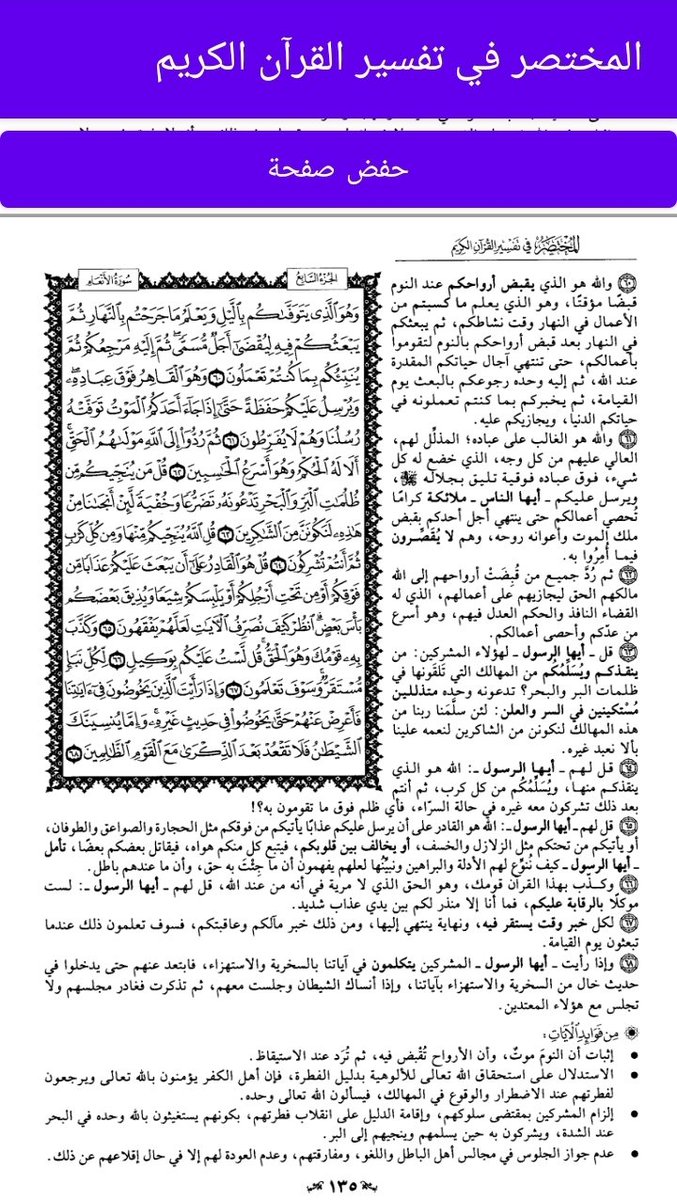 المختصر في تفسير القرآن الكريم
حفض صفحة
المُخْتَصَرُ في تَفْسِيرِ القُرآنِ الكَرِيمِ
سُورَةُ الأَنْعَامِ
الجُزْءُ السَّابِعُ
وَهُوَ ٱلَّذِى يَتَوَفَّىٰكُم بِٱلَّيْلِ وَيَعْلَمُ مَا جَرَحْتُم بِٱلنَّهَارِ ثُمَّ
يَبْعَثُكُمْ فِيهِ لِيُقْضَىٰٓ أَجَلٌ مُّسَمًّى ثُمَّ إِلَيْهِ مَرْجِعُكُمْ ثُمَّ
يُنَبِّئُكُم بِمَا كُنتُمْ تَعْمَلُونَ ٦٠ وَهُوَ ٱلْقَاهِرُ فَوْقَ عِبَادِهِۦ
وَيُرْسِلُ عَلَيْكُمْ حَفَظَةً حَتَّىٰٓ إِذَا جَآءَ أَحَدَكُمُ ٱلْمَوْتُ تَوَفَّتْهُ
رُسُلُنَا وَهُمْ لَا يُفَرِّطُونَ ٦١ ثُمَّ رُدُّوٓا۟ إِلَى ٱللَّهِ مَوْلَىٰهُمُ ٱلْحَقِّ
أَلَا لَهُ ٱلْحُكْمُ وَهُوَ أَسْرَعُ ٱلْحَٰسِبِينَ ٦٢ قُلْ مَن يُنَجِّيكُم مِّن
ظُلُمَٰتِ ٱلْبَرِّ وَٱلْبَحْرِ تَدْعُونَهُۥ تَضَرُّعًا وَخُفْيَةً لَّئِنْ أَنجَىٰنَا مِنْ
هَٰذِهِۦ لَنَكُونَنَّ مِنَ ٱلشَّٰكِرِينَ ٦٣ قُلِ ٱللَّهُ يُنَجِّيكُم مِّنْهَا وَمِن كُلِّ كَرْبٍ
ثُمَّ أَنتُمْ تُشْرِكُونَ ٦٤ قُلْ هُوَ ٱلْقَادِرُ عَلَىٰٓ أَن يَبْعَثَ عَلَيْكُمْ عَذَابًا مِّن
فَوْقِكُمْ أَوْ مِن تَحْتِ أَرْجُلِكُمْ أَوْ يَلْبِسَكُمْ شِيَعًا وَيُذِيقَ بَعْضَكُم
بَأْسَ بَعْضٍ ٱنظُرْ كَيْفَ نُصَرِّفُ ٱلْءَايَٰتِ لَعَلَّهُمْ يَفْقَهُونَ ٦٥ وَكَذَّبَ
بِهِۦ قَوْمُكَ وَهُوَ ٱلْحَقُّ قُل لَّسْتُ عَلَيْكُم بِوَكِيلٍ ٦٦ لِّكُلِّ نَبَإٍ
مُّسْتَقَرٌّ وَسَوْفَ تَعْلَمُونَ ٦٧ وَإِذَا رَأَيْتَ ٱلَّذِينَ يَخُوضُونَ فِىٓ ءَايَٰتِنَا
فَأَعْرِضْ عَنْهُمْ حَتَّىٰ يَخُوضُوا۟ فِى حَدِيثٍ غَيْرِهِۦ وَإِمَّا يُنسِيَنَّكَ
ٱلشَّيْطَٰنُ فَلَا تَقْعُدْ بَعْدَ ٱلذِّكْرَىٰ مَعَ ٱلْقَوْمِ ٱلظَّٰلِمِينَ ٦٨
٦٠ والله هو الذي يقبض أرواحكم عند النوم
قبضًا مؤقتًا، وهو الذي يعلم ما كسبتم من
الأعمال في النهار وقت نشاطكم، ثم يبعثكم
في النهار بعد قبض أرواحكم بالنوم لتقوموا
بأعمالكم، حتى تنتهي آجال حياتكم المقدرة
عند الله، ثم إليه وحده رجوعكم بالبعث يوم
القيامة، ثم يخبركم بما كنتم تعملونه في
حياتكم الدنيا، ويجازيكم عليه.
٦١ والله هو الغالب على عباده؛ المذلِّل لهم،
العالي عليهم من كل وجه، الذي خضع له كل
شيء، فوق عباده فوقية تليق بجلاله ﷻ،
ويرسل عليكم ـ أيها الناس ـ ملائكة كرامًا
تُحصي أعمالكم حتى ينتهي أجل أحدكم بقبض
ملك الموت وأعوانه روحه، وهم لا يُقَصِّرون
فيما أُمِرُوا به.
٦٢ ثم رُدَّ جميع من قُبِضَتْ أرواحهم إلى الله
مالكهم الحق ليجازيهم على أعمالهم، الذي له
القضاء النافذ والحكم العدل فيهم، وهو أسرع
من عدّكم وأحصى أعمالكم.
٦٣ قل ـ أيها الرسول ـ لهؤلاء المشركين: من
ينقذكم ويُسلِّمُكُم من المهالك التي تَلقَونها في
ظلمات البر والبحر؟ تدعونه وحده متذللين
مُسْتكينين في السر والعلن: لئن سلَّمَنا ربنا من
هذه المهالك لنكونن من الشاكرين لنعمه علينا
بألا نعبد غيره.
٦٤ قل لهم ـ أيها الرسول ـ: الله هو الذي
ينقذكم منها، ويُسلِّمُكُم من كل كرب، ثم أنتم
بعد ذلك تشركون معه غيره في حالة السرّاء، فأي ظلم فوق ما تقومون به؟!
٦٥ قل لهم ـ أيها الرسول ـ: الله هو القادر على أن يرسل عليكم عذابًا يأتيكم من فوقكم مثل الحجارة والصواعق والطوفان،
أو يأتيكم من تحتكم مثل الزلازل والخسف، أو يخالف بين قلوبكم، فيتبع كل منكم هواه، فيقاتل بعضكم بعضًا، تأمل
ـ أيها الرسول ـ كيف نُنَوِّع لهم الأدلة والبراهين ونبيِّنُها لعلهم يفهمون أن ما جِئْتَ به حق، وأن ما عندهم باطل.
٦٦ وكذَّب بهذا القرآن قومك، وهو الحق الذي لا مرية في أنه من عند الله، قل لهم ـ أيها الرسول ـ: لست
موكلًا بالرقابة عليكم، فما أنا إلا منذر لكم بين يدي عذاب شديد.
٦٧ لكل خبر وقت يستقر فيه، ونهاية ينتهي إليها، ومن ذلك خبر مآلكم وعاقبتكم، فسوف تعلمون ذلك عندما
تبعثون يوم القيامة.
٦٨ وإذا رأيت ـ أيها الرسول ـ المشركين يتكلمون في آياتنا بالسخرية والاستهزاء، فابتعد عنهم حتى يدخلوا في
حديث خال من السخرية والاستهزاء بآياتنا، وإذا أنساك الشيطان وجلست معهم، ثم تذكرت فغادر مجلسهم ولا
تجلس مع هؤلاء المعتدين.
مِن فَوَائِدِ الآيَاتِ:
• إثبات أن النومَ موتٌ، وأن الأرواح تُقْبض فيه، ثم تُرَد عند الاستيقاظ.
• الاستدلال على استحقاق الله تعالى للألوهية بدليل الفطرة، فإن أهل الكفر يؤمنون بالله تعالى ويرجعون
لفطرتهم عند الاضطرار والوقوع في المهالك، فيسألون الله تعالى وحده.
• إلزام المشركين بمقتضى سلوكهم، وإقامة الدليل على انقلاب فطرتهم، بكونهم يستغيثون بالله وحده في البحر
عند الشدة، ويشركون به حين يسلمهم وينجيهم إلى البر.
• عدم جواز الجلوس في مجالس أهل الباطل واللغو، ومفارقتهم، وعدم العودة لهم إلا في حال إقلاعهم عن ذلك.
١٣٥